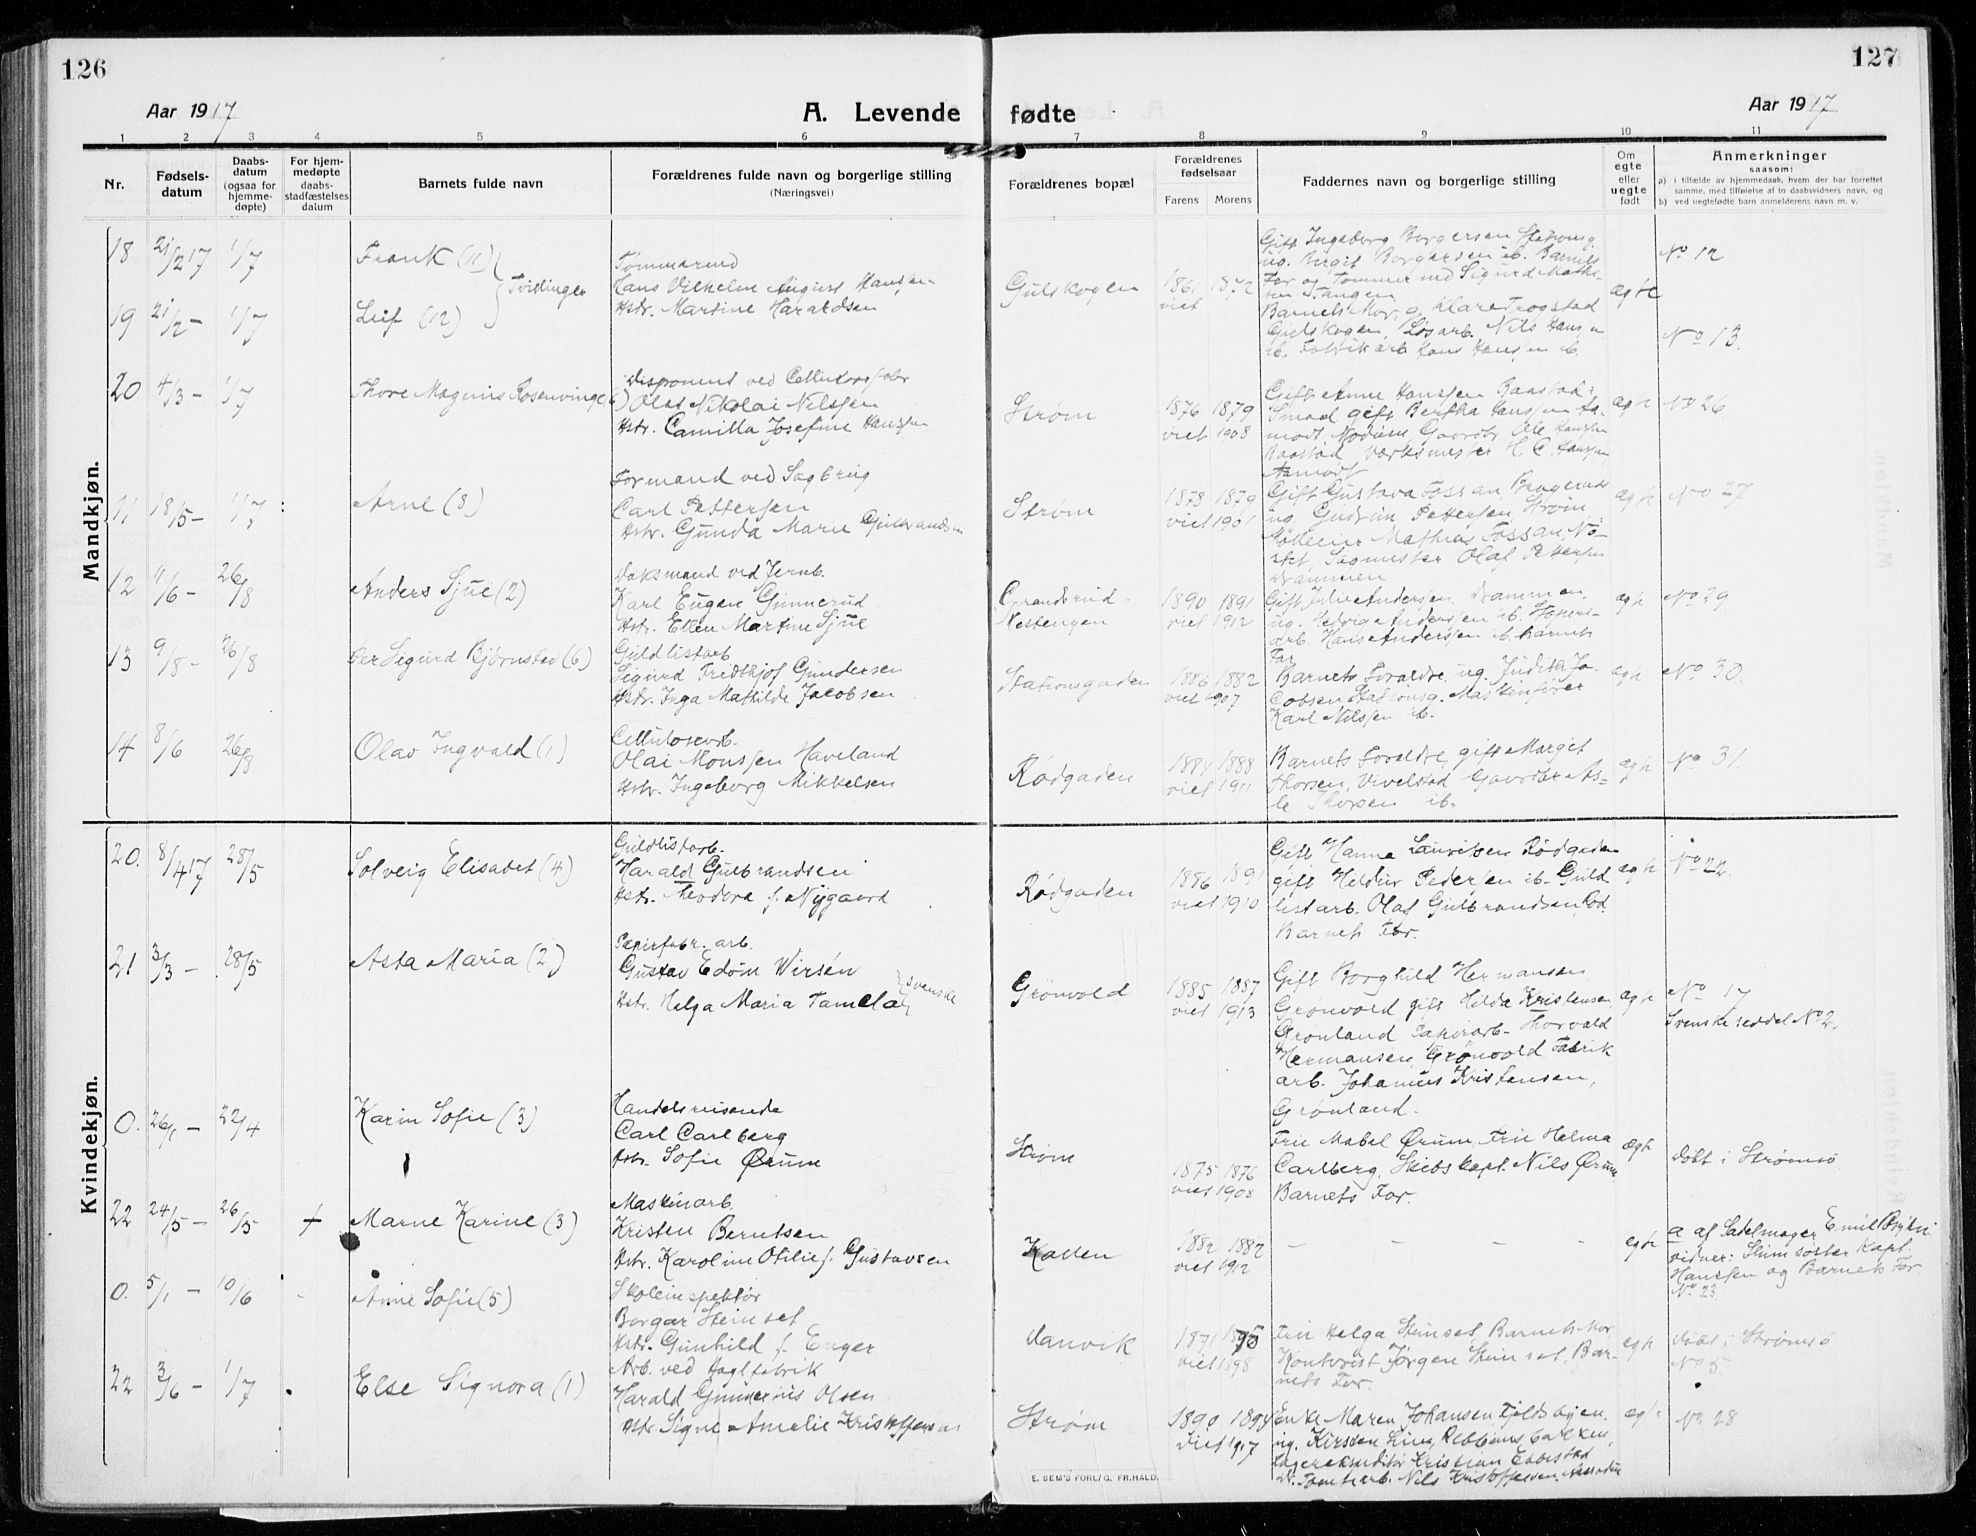 126
127
Aar 1917
A. Levende fødte
Aar 1917
1 2 3 4 5 6 7 8 9 10 11
Nr.
Fødsels-
datum
Daabs-
datum
(ogsaa for
hjemme-
døpte)
For hjem-
medøpte
daabs-
stadfæstelses
datum
Barnets fulde navn
Forældrenes fulde navn og borgerlige stilling
(Næringsvei)
Forældrenes bopæl
Forældrenes
fødselsaar
Farens Morens
Faddernes navn og borgerlige stilling
Om
egte
eller
uegte
født
Anmerkninger
saasom:
a) i tilfælde av hjemmedaab, hvem der har forrettet
samme, med tilføielse af to daabsvidners navn, og
b) ved uegtefødte barn anmelderens navn m. v.
Mandkjøn.
18 21/2 17 1/7 Frank (11)
Tvillinger
19 21/2 – 1/7 Leif (12)
Tømmermd
Hans Vilhelm August Hansen
Hstr. Martine Haraldsen
Gulskogen
1861 1872
viet
Gift Ingeborg Borgersen Stationsg
ug. Birgit Borgersen ib. Barnets
Far og Tømmermd Sigurd Mathi-
sen Tangen
Barnets Mor, g. Klare Trogstad
Gulskogen, Løsarb. Nils Hansen
ib. Fabrikarb Hans Hansen ib.
ægte
No 12
No 13.
20 4/3 – 1/7 Thore Magnus Rosenvinge (6)
Disponent ved Cellulosefabr
Olaf Nikolai Nilssen
Hstr. Camilla Josefine Hanssen
Strøm
1876 1879
viet 1908
Gift Anne Hanssen Baastad i
Smaal gift Bertha Hanssen Aa-
modt Modum Gaardbr. Ole Hanssen
Baastad Værksmester H. C. Hanssen
Aamodt
ægte
No 26
11 18/5 – 1/7 Arne (8)
Formand ved Sagbrug
Carl Pettersen
Hstr. Gunda Marie Gulbrandsen
Strøm
1878 1879
viet 1901
Gift Gustava Fossan, Bragernes
ug. Gudrun Pettersen Strøm
Mølleeier Mathias Fossan, Nø-
stet, Sagmester Olaf Pettersen
Drammen
ægte
No 27
12 11/6 – 26/8 Anders Sjue (2)
Vaksmand ved Jernb.
Karl Eugen Gunnerud
Hstr. Ellen Martine Sjue
Nestengen
1890 1891
viet 1912
Gift Julie Anderssen. Drammen.
ug. Hedvig Anderssen ib.
arb. Hans Anderssen ib. Barnets
Far
egte
No 29
13 9/8 – 26/8 Per Sigurd Bjørnstad (6)
Guldlistarb
Sigurd Fridthjof Gundersen
Hstr. Inga Mathilde Jacobsen
Stationsgaden
1886 1882
viet 1907
Barnets Foraldre, ug. Judith Ja-
cobsen Stationsg. Maskinfører
Karl Nilssen ib.
egte
No 30.
14 8/6 26/8 Olav Ingvald (1)
Cellulosearb.
Olai Monssen Haveland
Hstr. Ingeborg Mikkelsen
Rødgaden
1884 1888
viet 1911
Barnets Foraldre, gift Margit
Thorsen, Vivelstad Gaardbr As-
le Thorsen ib.
egte
No 31.
Kvindekjøn.
20. 8/4 17 28/5 Solveig Elisabet (4)
Guldlistarb.
Harald Gulbrandsen
Hstr. Theodora f. Nygaard
Rødgaden
1886 1891
viet 1910
Gift Hanna Lauritsen Rødgaden
gift Hildur Pedersen ib. Guld
listarb. Olaf Gulbrandsen, Rød.
Barnets Far.
egte
No 22.
21 3/3 – 28/5 Asta Maria (2)
Papirfabr. arb.
Gustav Edøm Wirsén
Hstr. Helga Maria Tamela
svenske
Grønvold
1885 1887
viet 1913
Gift Borghild Hermansen
Grønvold gift Hilda Kristensen
Grønland Papirarb. Thorvald
Hermansen, Grønvold Fabrik
arb. Johannes Kristensen,
Grønland.
egte
No 17
Svenske seddel No 2.
0. 26/1 – 22/4 Karin Sofie (3)
Handelsreisende
Carl Carlberg
Hstr. Sofie Ørum
Strøm
1875 1876
viet 1908
Frie Mabel Ørum, Frie Helma
Carlberg, Skibskapt. Nils Ørum
Barnets Far.
ægte
Døbt i Strømsø
22 24/5 – 26/5 + Marne Karine (3)
Maskinarb.
Kristen Berntsen
Hstr. Karoline Otilie f. Gustavsen
Kallen
1882 1882
viet 1912
– – – –
egte
a af Sadelmager Emil
vidner: Slumsøster Kapt.
Hanssen og Barnets Far
No 23
0. 5/1 – 10/6 Anne Sofie (5)
Skoleinspektør
Borgar Steinset
Hstr. Gunhild f. Enger
Danvik
1871 1875
viet 1898
Frie Helga Steinset, Barnets Mor
Kontorist Jørgen Steinset, Bar-
nets Far.
egte
Døbt i Strømsø
No 5
22 3/6 – 1/7 Else Signora (1)
Arb. ved Haglfabrik
Harald Gunnerius Olsen
Hstr. Signe Amelie Kristoffersen
Strøm
1890 1894
viet 1917
Enke Maren Johansen Fjeldsbyen.
ug. Kirsten Lie, Rebbansbakken,
Lagerekspeditør Kristian Ebbestad
Dr. Tomtearb. Nils Kristoffersen
ægte
No 28
E. SEM'S FORL/G. FR.HALD.